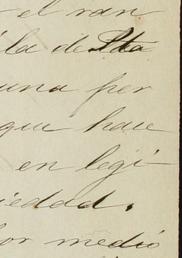 el ran
la de Pta
una per
que hace
en legi-
iedad.
por medio